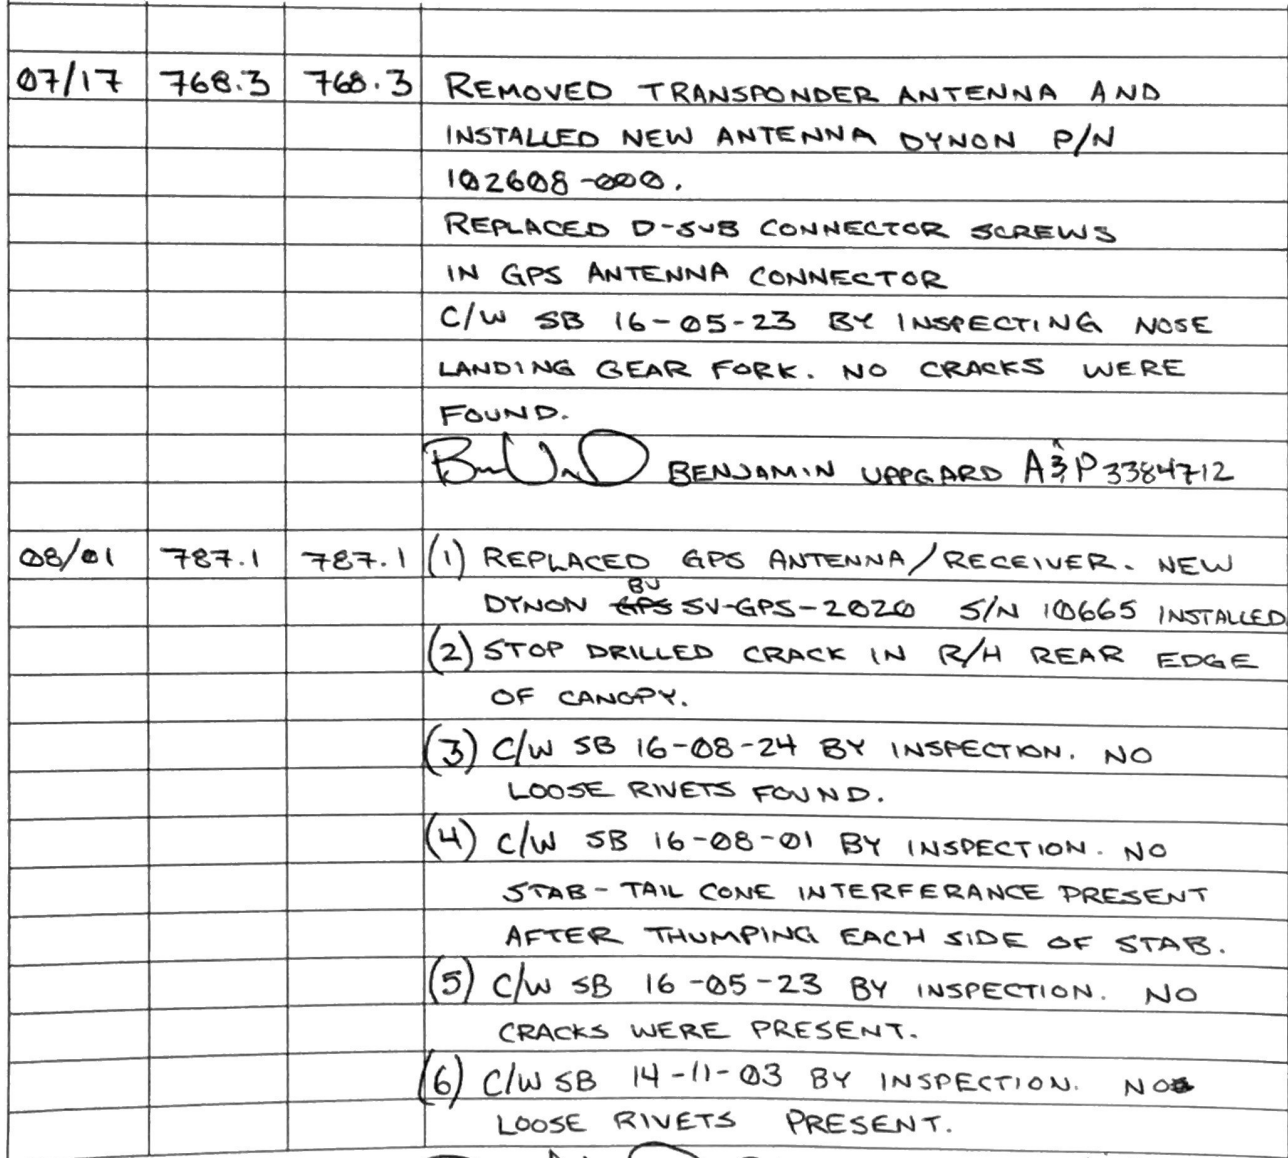 07/17 768.3 768.3 REMOVED TRANSPONDER ANTENNA AND
INSTALLED NEW ANTENNA DYNON P/N
102608-000.
REPLACED D-SUB CONNECTOR SCREWS
IN GPS ANTENNA CONNECTOR
C/W SB 16-05-23 BY INSPECTING NOSE
LANDING GEAR FORK. NO CRACKS WERE
FOUND.
BENJAMIN UPPGARD A&P 3384712
08/01 787.1 787.1 (1) REPLACED GPS ANTENNA/RECEIVER. NEW
BU
DYNON GPS SV-GPS-2020 S/N 10665 INSTALLED
(2) STOP DRILLED CRACK IN R/H REAR EDGE
OF CANOPY.
(3) C/W SB 16-08-24 BY INSPECTION. NO
LOOSE RIVETS FOUND.
(4) C/W SB 16-08-01 BY INSPECTION. NO
STAB-TAIL CONE INTERFERANCE PRESENT
AFTER THUMPING EACH SIDE OF STAB.
(5) C/W SB 16-05-23 BY INSPECTION. NO
CRACKS WERE PRESENT.
(6) C/W SB 14-11-03 BY INSPECTION. NO
LOOSE RIVETS PRESENT.